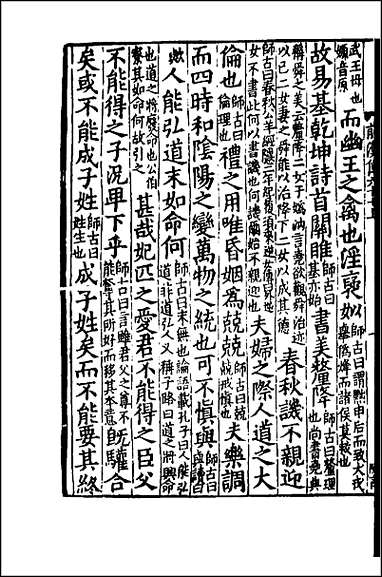 武王母也嫄音原而幽王之禽也淫襃姒師古曰謂黜申后而致犬戎舉僞烽而諸侯莫救也
故易基乾坤詩首關雎師古曰基亦始書美釐降師古曰釐理也尚書堯典
稱舜之美云釐降二女于嬀汭言堯欲觀舜治迹以己二女妻之舜能以治降下二女以成其德春秋譏不親迎
師古曰春秋公羊經隱二年紀履緰來逆女傳曰外逆女不書此何以書譏何譏爾譏始不親迎也夫婦之際人道之大
倫也師古曰倫理也禮之用唯昏姻爲兢兢師古曰兢兢戒慎也夫樂調
而四時和陰陽之變萬物之統也可不慎與師古曰與讀曰
歟人能弘道末如命何師古曰末無也論語載孔子曰人能弘道非道弘人又稱子路曰道之將興命
也道之將廢命也公伯寮其如命何故引之甚哉妃匹之愛君不能得之臣父
不能得之子況卑下乎師古曰言雖君父之尊不能奪其所好而移其本意旣驩合
矣或不能成子姓師古曰姓生也成子姓矣而不能要其終